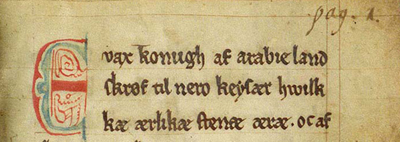 pag. 1.
Evax konungh af arabie land
skrøf til nero keysær hwilk
kæ ærlikæ stenæ æræ. oc af